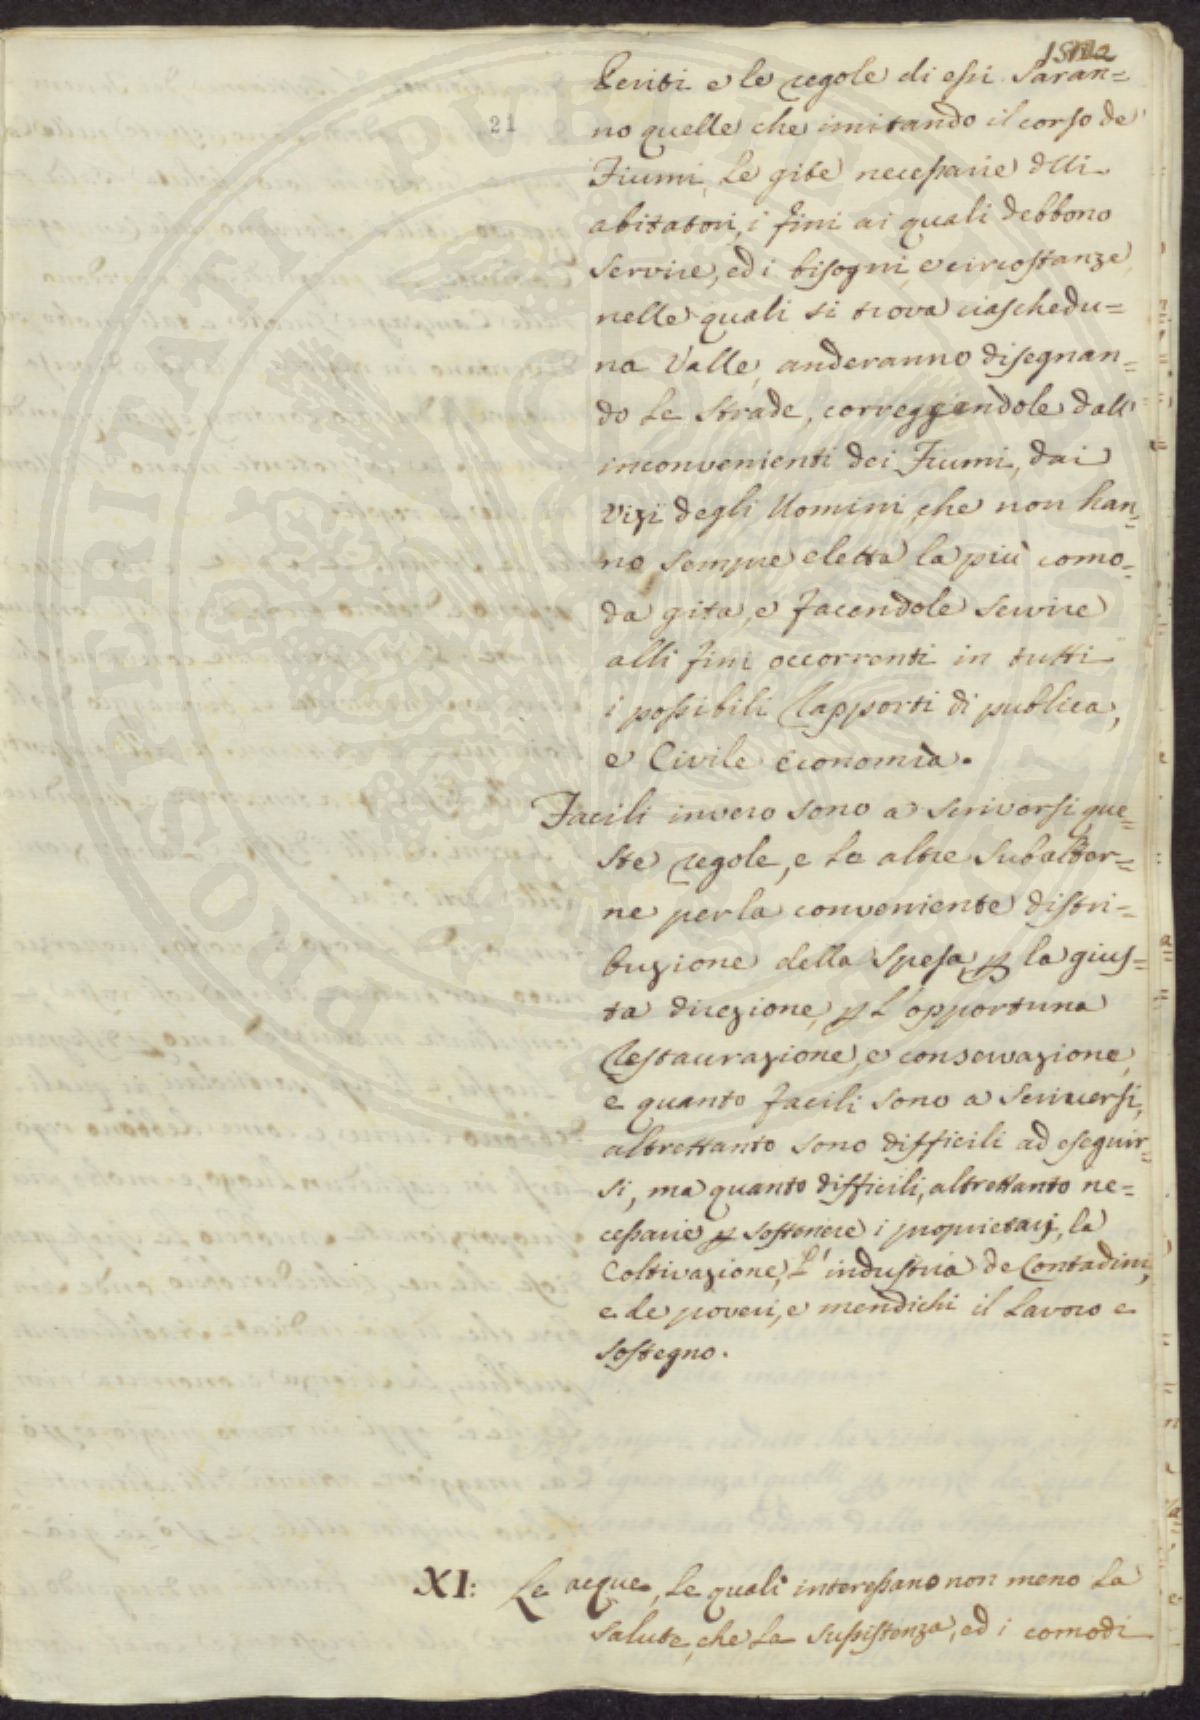 21
Periti e le regole di essi saran=
no quelle che imitando il corso de'
Fiumi, le gite necessarie dlli
abitatori, i fini ai quali debbono
servire, ed i bisogni, e circostanze
nelle quali si trova ciaschedu=
na Valle, anderanno disegnan=
do le strade, correggendole dall'
inconvenienti dei Fiumi, dai
vizi degli Uomini, che non han=
no sempre eletta la più como=
da gita, e facendole servire
alli fini occorrenti in tutti
i possibili Rapporti di publica,
e Civile economia.
Facili invero sono a scriversi que=
ste regole, e le altre subalter=
ne per la conveniente distri=
buzione della spesa, p la gius=
ta direzione, p l'opportuna
Restaurazione, e conservazione,
e quanto facili sono a scriversi,
altrettanto sono difficili ad eseguir=
si, ma quanto difficili, altrettanto ne=
cessarie p sostenere i proprietarj, la
Coltivazione, l'industria de Contadini,
e de poveri, e mendichi il lavoro e
sostegno.
XI: Le acque, le quali interessano non meno la
salute, che la sussistenza, ed i comodi
POSTERITATI PVBLICAE